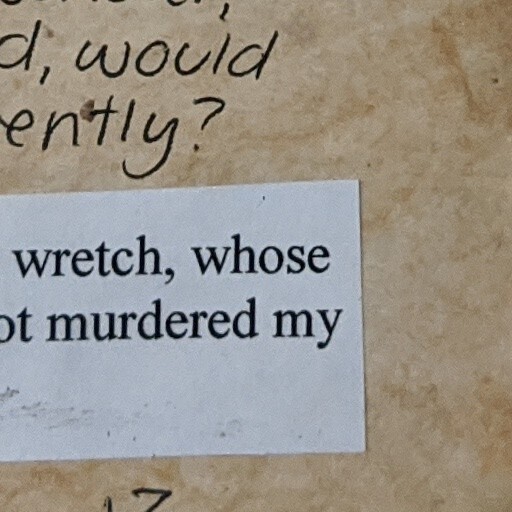 d, would
ently?
wretch, whose
ot murdered my